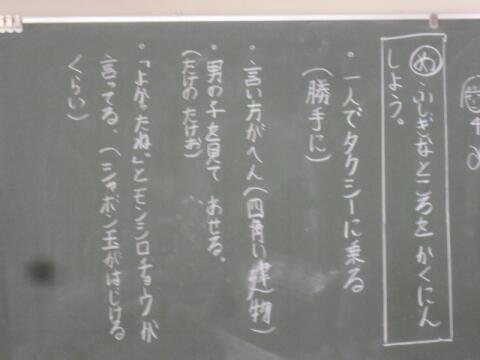 め ふしぎなところをかくにん
しよう。
・一人でタクシーに乗る
（勝手に）
・言い方がへん（四角い建物）
・男の子を見て あせる。
（たけの たけお）
・「よかったね。」とモンシロチョウが
言ってる、（シャボン玉がはじける
くらい）